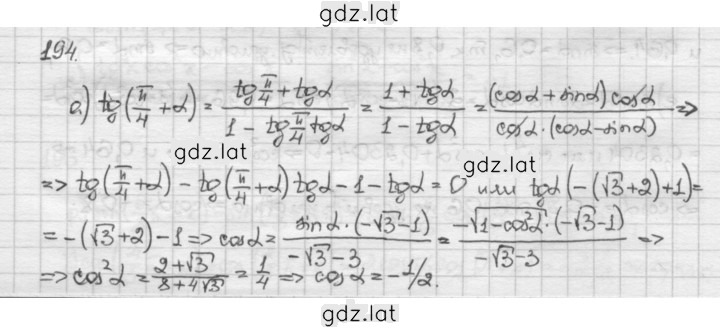 gdz.lat
194.
а) tg(π/4 + α) = (tg π/4 + tgα)/(1 - tg π/4 tgα) = (1 + tgα)/(1 - tgα) = ((cosα + sinα) cosα)/(cosα·(cosα - sinα)) =>
gdz.lat gdz.lat
=> tg(π/4 + α) - tg(π/4 + α) tgα - 1 - tgα = 0 или tgα(-(√3 + 2) + 1) =
= -(√3 + 2) - 1 => cosα = (sinα·(-√3 - 1))/(-√3 - 3) = (-√(1 - cos²α)·(-√3 - 1))/(-√3 - 3) =>
=> cos²α = (2 + √3)/(8 + 4√3) = 1/4 => cosα = -1/2.
gdz.lat